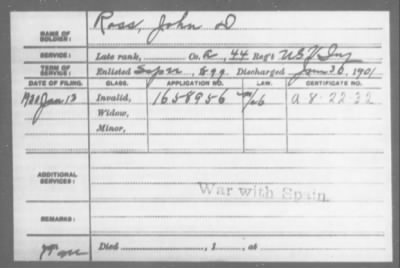 NAME OF SOLDIER: Ross, John D
SERVICE: Late rank, Co. R, 44 Reg't U S V Inf
TERM OF SERVICE: Enlisted , 1899. Discharged June 30, 1901
DATE OF FILING. CLASS. APPLICATION NO. LAW. CERTIFICATE NO.
1921 Jan 13 Invalid, 1658956 A 8-22-32
Widow,
Minor,
ADDITIONAL SERVICES: War with Spain.
REMARKS:
Died , 1 , at